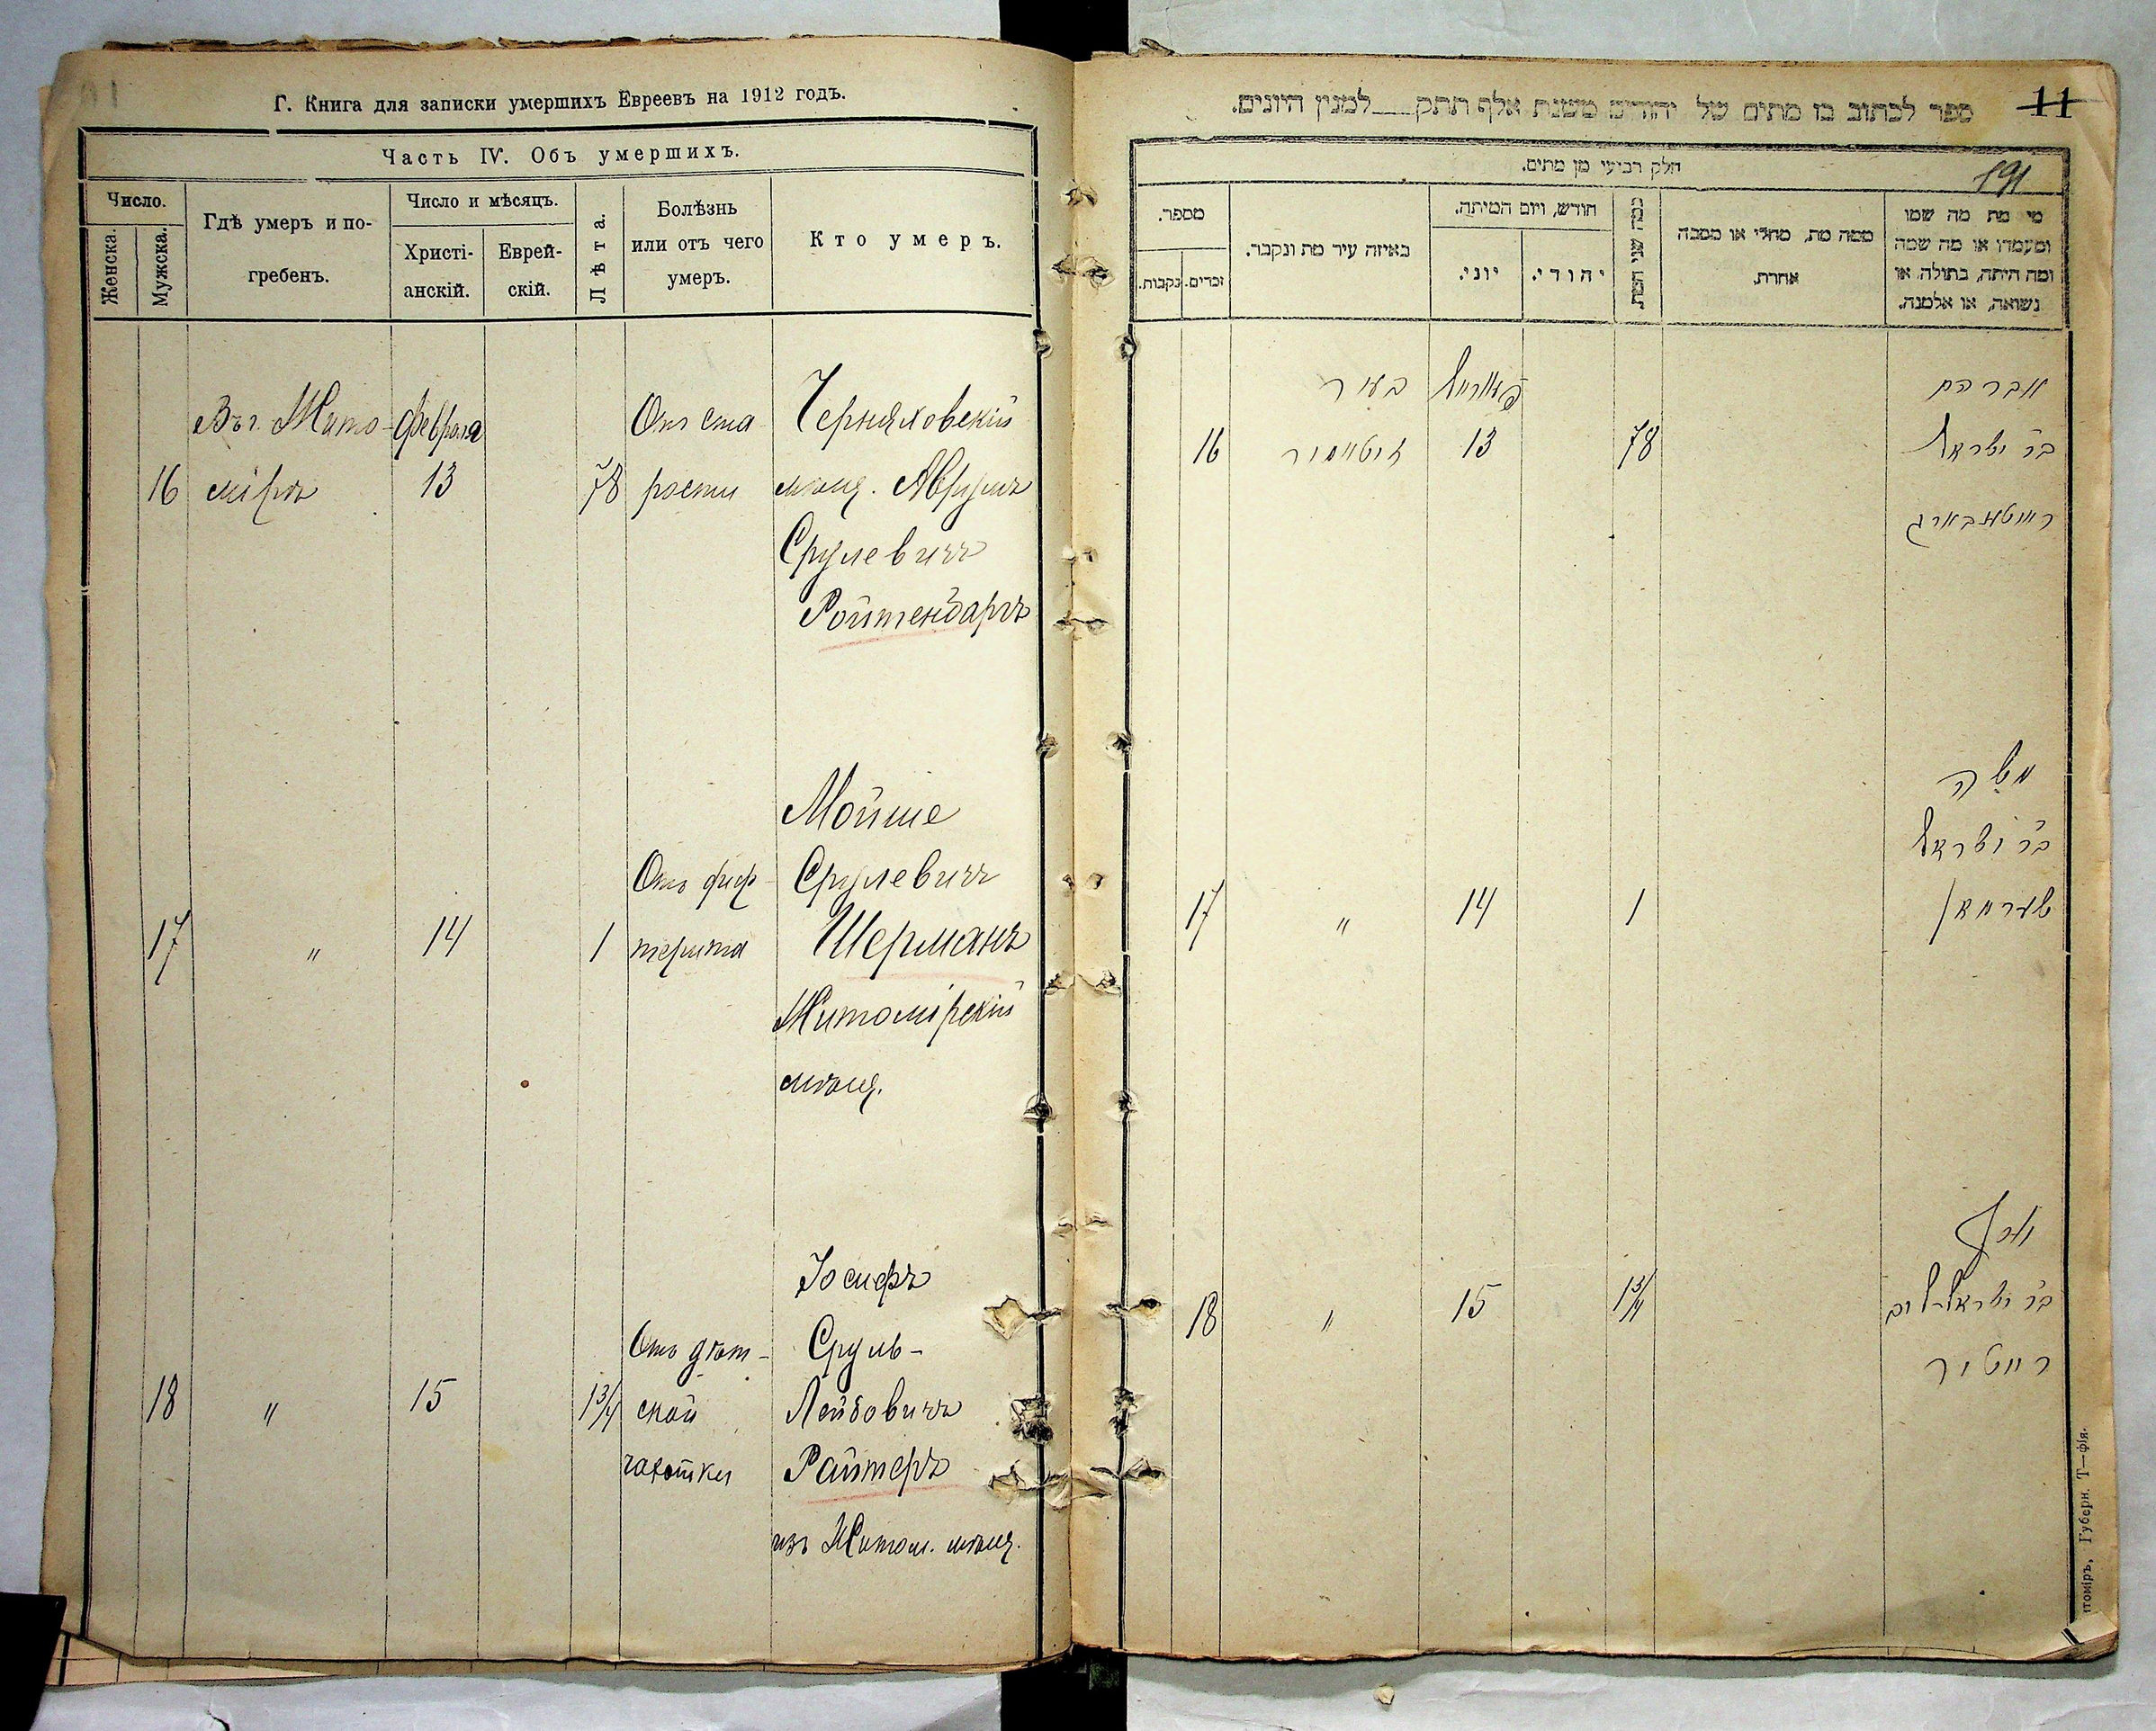 Г. Книга для записки умершихъ Евреевъ на 1912 годъ.
Часть IV. Объ умершихъ.
Число.
Женска.
Мужска.
Гдѣ умеръ и по-
гребенъ.
Число и мѣсяцъ.
Христі-
анскій.
Еврей-
скій.
Лѣта.
Болѣзнь
или отъ чего
умеръ.
Кто умеръ.
16
Въ г. Жито-
мірѣ
Февраля
13
78
Отъ ста
рости
Черняховскій
мѣщ. Аврумъ
Срулевичъ
Ройтенбаргъ
17
"
14
1
Отъ диф-
терита
Мойше
Срулевичъ
Шерманъ
Житомірскій
мѣщ.
18
"
15
1 3/4
Отъ дѣт-
ской
чахотки
Іосифъ
Сруль-
Лейбовичъ
Райтеръ
изъ Житом. мѣщ.
ספר לכתוב בו מתים של יהודים משנת אלף תתק למנין היונים.
11
191
חלק רביעי מן מתים.
מספר.
זכרים.
נקבות.
באיזה עיר מת ונקבר.
חודש, ויום המיתה.
יוני.
יהודי.
כמה שני המת
ממה מת, מחלי או מסבה
אחרת.
מי מת מה שמו
ומעמדו או מה שמה
ומה היתה, בתולה, או
נשואה, או אלמנה.
16
בעיר
זיטאמיר
13
78
אברהם
בר ישראל
רויטענבארג
17
"
14
1
משה
בר ישראל
שערמאן
18
"
15
1 3/4
יוסף
בר ישראל ליב
רייטיר
итоміръ, Губерн. Т—фія.